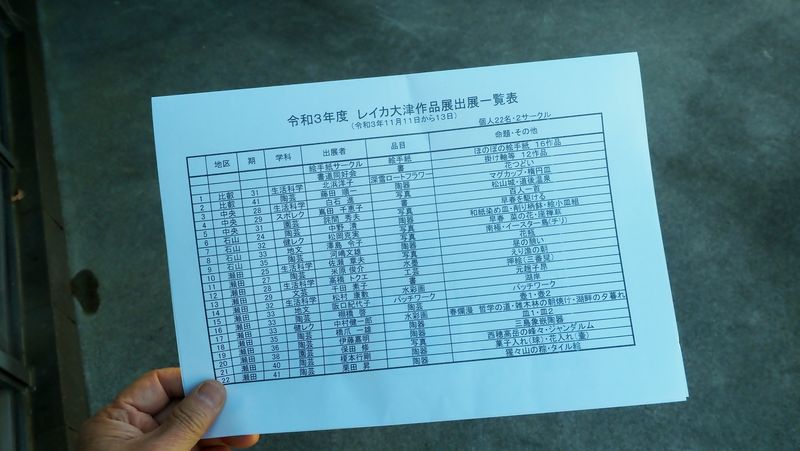 令和3年度 レイカ大津作品展出展一覧表
(令和3年11月11日から13日) 個人22名・2サークル
地区 期 学科 出展者 品目 命題・その他
絵手紙サークル 絵手紙 ほのぼの絵手紙 16作品
書道同好会 書 掛け軸等 12作品
1 比叡 31 生活科学 北浜洋子 深雪ロートフラワー 花つどい
2 比叡 41 陶芸 藤田 順一 陶器 マグカップ・楕円皿
3 中央 28 生活科学 白石 進 書 松山城・道後温泉
4 中央 29 スポレク 嘉田 千恵子 書 百人一首
5 中央 31 園芸 秀夫 写真 早春を駆ける
6 石山 24 陶芸 中野 清 陶器 和紙染め皿・削り柄鉢・絵小皿組
7 石山 32 健レク 松岡克実 写真 早春 菜の花・座禅草
8 石山 33 地文 澤島 令子 写真 南極・イースター島(チリ)
9 石山 35 園芸 河嶋文雄 陶器 花瓶
10 瀬田 25 生活科学 佐瀬 章夫 写真
11 瀬田 27 陶芸 米原 俊介 水墨 えり漁の朝
12 瀬田 28 生活科学 高橋 トクエ 工芸
13 瀬田 29 文芸 千田 素子 書
14 瀬田 32 生活科学 松村 康数 水彩画 湖岸
15 瀬田 33 地文 阪口紀代子 パッチワーク パッチワーク
16 瀬田 33 陶芸 棚橋 啓 陶芸 壷1・壷2
17 瀬田 33 健レク 中村健一郎 水彩画 春爛漫 哲学の道・雑木林の朝焼け・湖畔の夕暮れ
18 瀬田 35 陶芸 橋爪 一雄 陶器 皿1・皿2
19 瀬田 36 陶芸 伊藤嘉明 陶器 三島象嵌陶器
20 瀬田 38 園芸 保田 修 写真 西穂高岳の峰々・ジャンダルム
21 瀬田 40 陶芸 榎本行剛 陶器 菓子入れ(球)・花入れ(壷)
22 瀬田 41 陶芸 栗田 昇 陶器 タイル絵